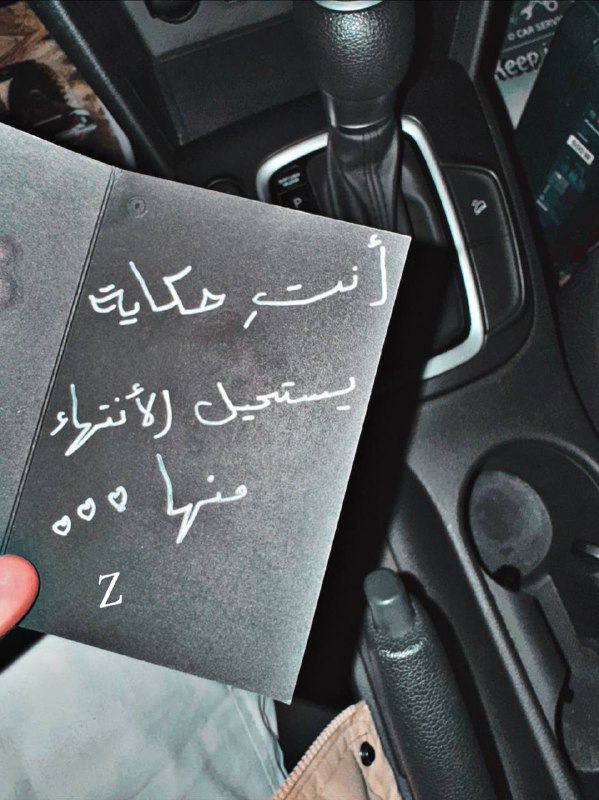 أنتِ حكاية
يستحيل الأنتهاء
منها ♡♡♡
Z
P
CAR SERV